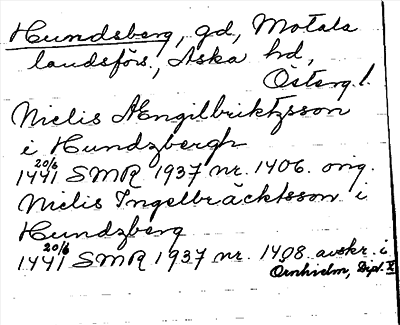 Hundsberg, gd, Motala
landsförs., Aska hd,
Österg l.
Nielis Ængilbriktzsson
i Hundzbergh
1441 20/6 SMR 1937 nr. 1406. orig.
Nielis Ingelbräcktsson i
Hundzberg
1441 20/6 SMR 1937 nr. 1408 avskr. i
Örnhielm, Dipl. V